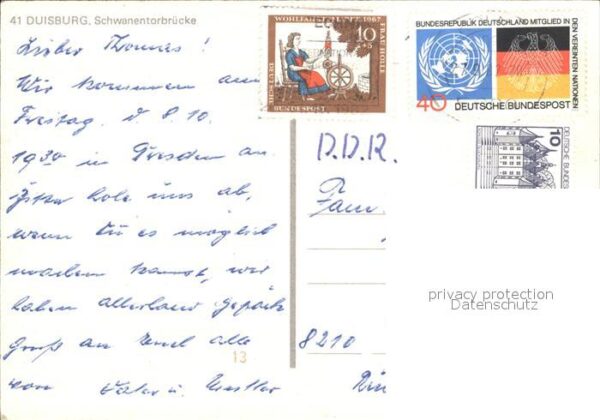 41 DUISBURG, Schwanentorbrücke
Lieber Thomas!
Wir kommen am
Freitag. d 8 10.
19³⁰ in Dresden an
hole uns ab,
wenn Du es möglich
machen kannst, wir
haben allerhand Gepäck
Gruß an alle
von Vater u. Mutter
13
WOHLFAHRTSMARKE 1967
FRAU HOLLE
10
+5
DEUTSCHE
BUNDESPOST
BUNDESREPUBLIK DEUTSCHLAND MITGLIED IN
DEN VEREINTEN NATIONEN
40
DEUTSCHE BUNDESPOST
10
DEUTSCHE BUNDES
D.D.R.
Fam.
8210
privacy protection
Datenschutz